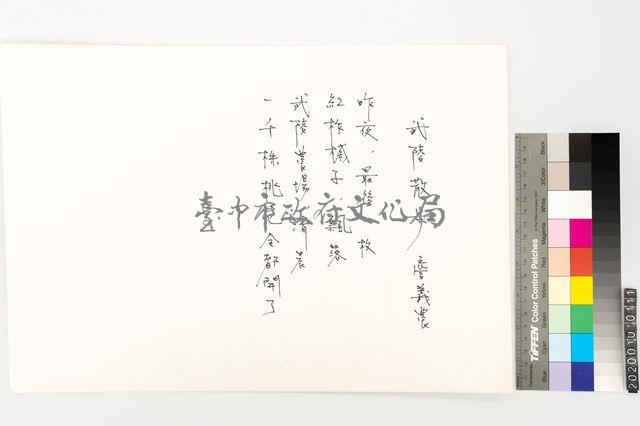 武陵散步 詹義農
昨夜，最後一枚
紅柞槭子飄落
武陵農場清晨
一千株桃花全都開了
臺中市政府文化局
TIFFEN Color Control Patches
Blue Cyan Green Yellow Red Magenta White 3/Color Black